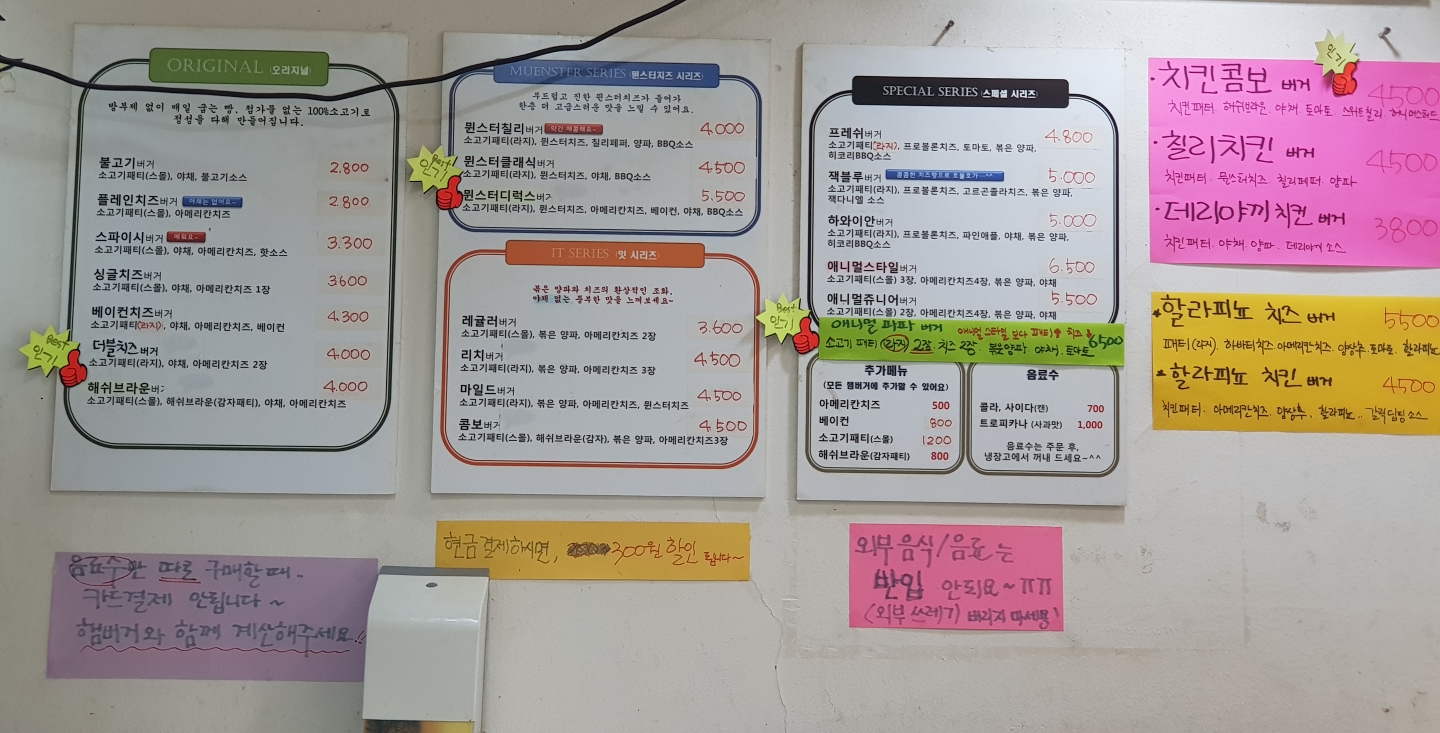 ORIGINAL (오리지널)
방부제 없이 매일 굽는 빵, 첨가물 없는 100%소고기로
정성을 다해 만들어집니다.
불고기버거 2.800
소고기패티(스몰), 야채, 불고기소스
플레인치즈버거 야채는 없어요~ 2.800
소고기패티(스몰), 아메리칸치즈
스파이시버거 매워요~ 3.300
소고기패티(스몰), 야채, 아메리칸치즈, 핫소스
싱글치즈버거 3600
소고기패티(스몰), 야채, 아메리칸치즈 1장
베이컨치즈버거 4.300
소고기패티(라지), 야채, 아메리칸치즈, 베이컨
Best 인기
더블치즈버거 4.000
소고기패티(라지), 야채, 아메리칸치즈 2장
해쉬브라운버거 4.000
소고기패티(스몰), 해쉬브라운(감자패티), 야채, 아메리칸치즈
MUENSTER SERIES (뮌스터치즈 시리즈)
부드럽고 진한 뮌스터치즈가 들어가
한층 더 고급스러운 맛을 느낄 수 있어요.
뮌스터칠리버거 약간 매콤해요~ 4.000
소고기패티(라지), 뮌스터치즈, 칠리페퍼, 양파, BBQ소스
Best 인기
뮌스터클래식버거 4500
소고기패티(라지), 뮌스터치즈, 야채, BBQ소스
뮌스터디럭스버거 5,500
소고기패티(라지), 뮌스터치즈, 아메리칸치즈, 베이컨, 야채, BBQ소스
IT SERIES (잇 시리즈)
볶은 양파와 치즈의 환상적인 조화.
야채 없는 풍부한 맛을 느껴보세요~
레귤러버거 3.600
소고기패티(스몰), 볶은 양파, 아메리칸치즈 2장
리치버거 4500
소고기패티(라지), 볶은 양파, 아메리칸치즈 3장
마일드버거 4.500
소고기패티(라지), 볶은 양파, 아메리칸치즈, 뮌스터치즈
콤보버거 4500
소고기패티(스몰), 해쉬브라운(감자), 볶은 양파, 아메리칸치즈3장
SPECIAL SERIES (스페셜 시리즈)
프레쉬버거 4.800
소고기패티(라지), 프로볼론치즈, 토마토, 볶은 양파,
히코리BBQ소스
잭블루버거 콤콤한 치즈향으로 호불호가…^^ 5.000
소고기패티(라지), 프로볼론치즈, 고르곤졸라치즈, 볶은 양파,
잭다니엘 소스
하와이안버거 5.000
소고기패티(라지), 프로볼론치즈, 파인애플, 야채, 볶은 양파,
히코리BBQ소스
애니멀스타일버거 6.500
소고기패티(스몰) 3장, 아메리칸치즈4장, 볶은 양파, 야채
애니멀쥬니어버거 5.500
소고기패티(스몰) 2장, 아메리칸치즈4장, 볶은 양파, 야채
Best 인기
애니멀 파파 버거 애니멀 스타일 보다 패티⬆ 치즈⬇
소고기 패티 (라지) 2장. 치즈 2장 볶은양파. 야채. 토마토 6500
추가메뉴
(모든 햄버거에 추가할 수 있어요)
아메리칸치즈 500
베이컨 800
소고기패티(스몰) 1200
해쉬브라운(감자패티) 800
음료수
콜라, 사이다(캔) 700
트로피카나 (사과맛) 1,000
음료수는 주문 후,
냉장고에서 꺼내 드세요~^^
인기
·치킨콤보 버거 4500
치킨패티. 해쉬브라운. 야채. 토마토. 스위트칠리. 허니머스터드
·칠리치킨 버거 4500
치킨패티. 뮌스터치즈. 칠리페퍼. 양파
·데리야끼치킨 버거 3800
치킨패티. 야채. 양파. 데리야끼 소스
*할라피뇨 치즈 버거 5500
패티(라지). 하바티치즈. 아메리칸치즈. 양상추. 토마토. 할라피뇨
*할라피뇨 치킨 버거 4500
치킨패티. 아메리칸치즈. 양상추. 할라피뇨.. 갈릭딥핑소스
음료수만 따로 구매할 때.
카드결제 안됩니다~
햄버거와 함께 계산해주세요!!
현금결제하시면, 300원 할인 됩니다~
외부음식/음료는
반입 안되요~ㅠㅠ
(외부 쓰레기) 버리지 마세용